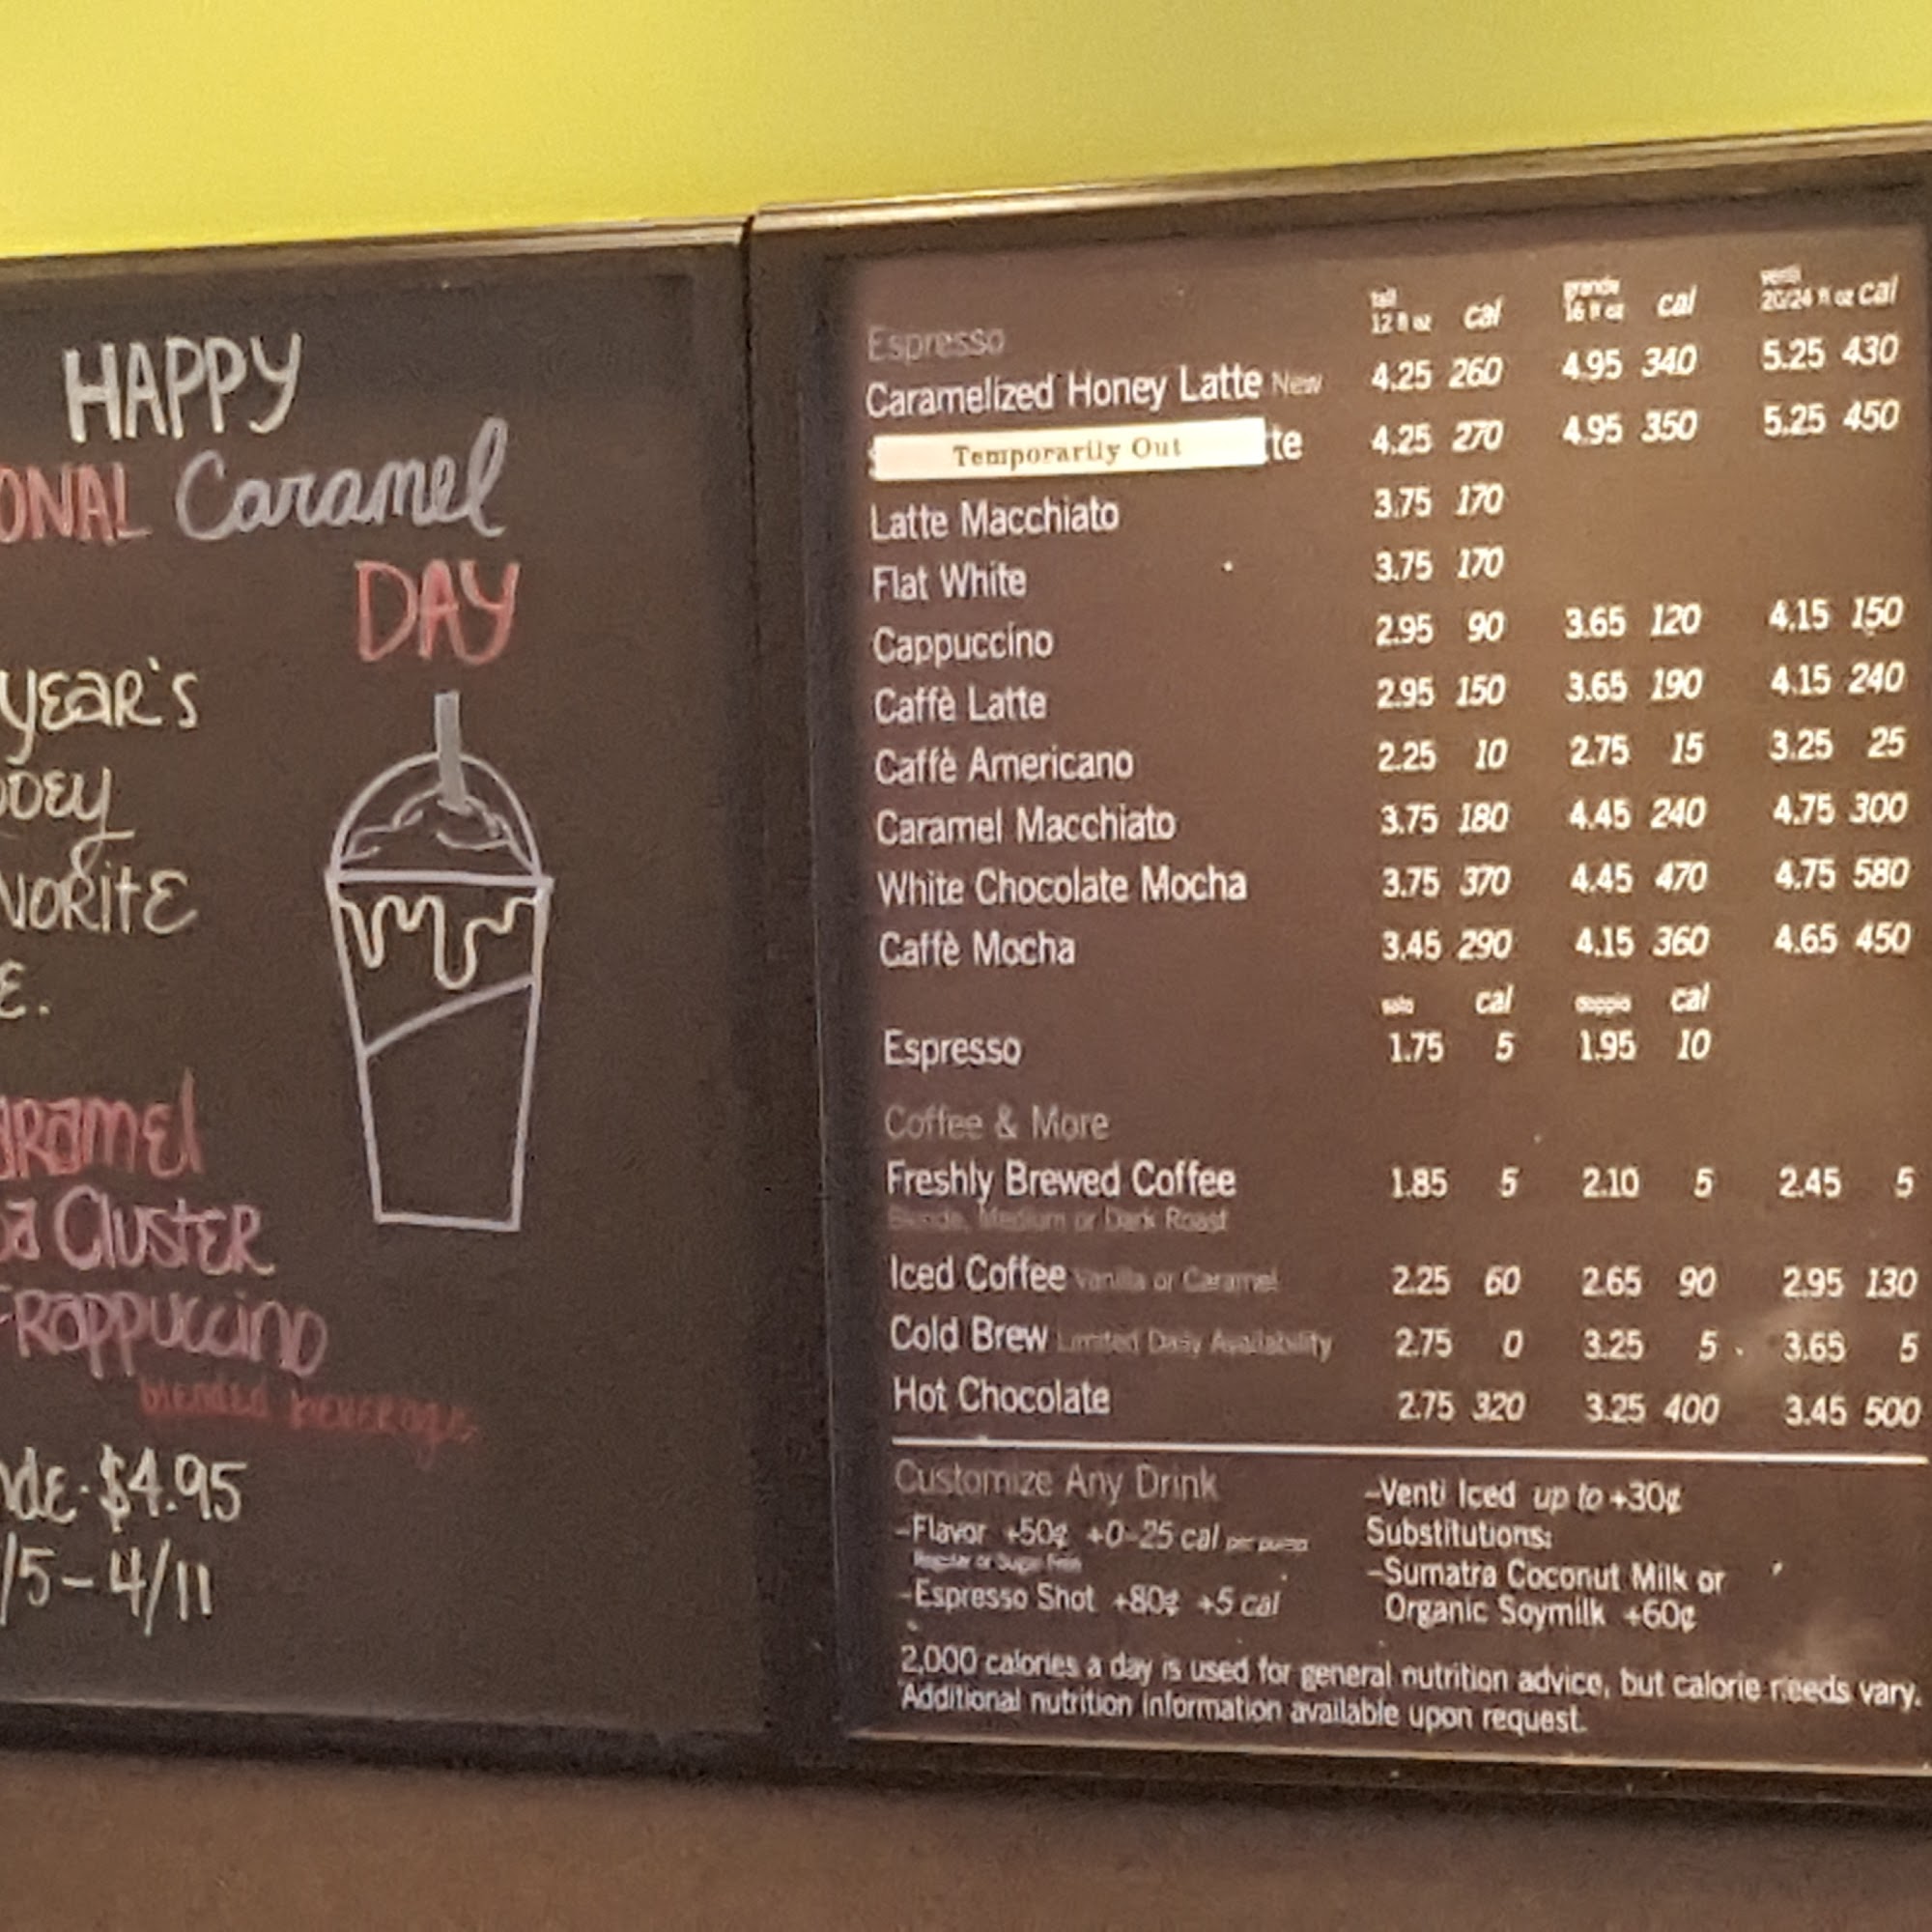 HAPPY
ONAL Caramel
DAY
YEAR'S
OOEY
VORITE
E.
ARAMEL
CLUSTER
FRAPPUCCINO
blended beverage
NDE - $4.95
/5 - 4/11
tall grande venti
12 fl oz cal 16 fl oz cal 20/24 fl oz cal
Espresso
Caramelized Honey Latte New 4.25 260 4.95 340 5.25 430
Temporarily Out tte 4.25 270 4.95 350 5.25 450
Latte Macchiato 3.75 170
Flat White 3.75 170
Cappuccino 2.95 90 3.65 120 4.15 150
Caffè Latte 2.95 150 3.65 190 4.15 240
Caffè Americano 2.25 10 2.75 15 3.25 25
Caramel Macchiato 3.75 180 4.45 240 4.75 300
White Chocolate Mocha 3.75 370 4.45 470 4.75 580
Caffè Mocha 3.45 290 4.15 360 4.65 450
solo cal doppio cal
Espresso 1.75 5 1.95 10
Coffee & More
Freshly Brewed Coffee 1.85 5 2.10 5 2.45 5
Blonde, Medium or Dark Roast
Iced Coffee Vanilla or Caramel 2.25 60 2.65 90 2.95 130
Cold Brew Limited Daily Availability 2.75 0 3.25 5 3.65 5
Hot Chocolate 2.75 320 3.25 400 3.45 500
Customize Any Drink
-Flavor +50¢ +0-25 cal per pump
Regular or Sugar Free
-Espresso Shot +80¢ +5 cal
-Venti Iced up to +30¢
Substitutions:
-Sumatra Coconut Milk or
Organic Soymilk +60¢
2,000 calories a day is used for general nutrition advice, but calorie needs vary.
Additional nutrition information available upon request.